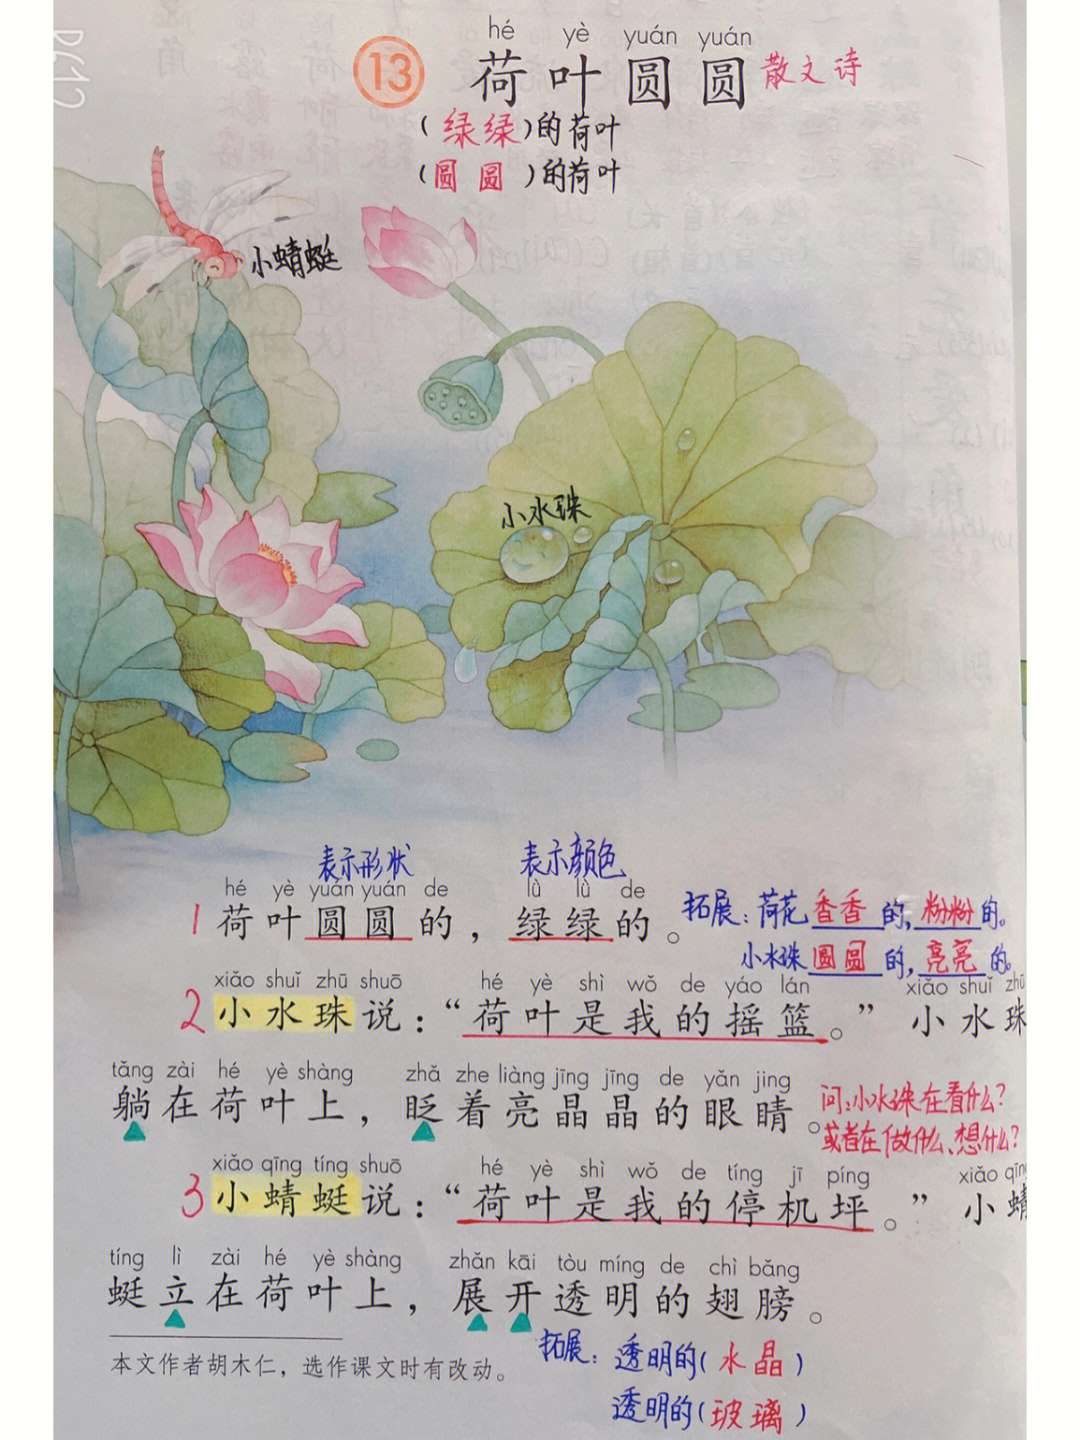 hé yè yuán yuán
13 荷叶圆圆 散文诗
(绿绿)的荷叶
(圆圆)的荷叶
小蜻蜓
小水珠
表示形状 表示颜色
hé yè yuán yuán de lǜ lǜ de
1 荷叶圆圆的，绿绿的。 拓展：荷花香香的，粉粉的。
小水珠圆圆的，亮亮的。
xiǎo shuǐ zhū shuō hé yè shì wǒ de yáo lán xiǎo shuǐ zhū
2 小水珠说：“荷叶是我的摇篮。”小水珠
tǎng zài hé yè shàng zhǎ zhe liàng jīng jīng de yǎn jing
躺在荷叶上，眨着亮晶晶的眼睛。 问：小水珠在看什么？
或者在做什么、想什么？
xiǎo qīng tíng shuō hé yè shì wǒ de tíng jī píng xiǎo qīng
3 小蜻蜓说：“荷叶是我的停机坪。”小蜻
tíng lì zài hé yè shàng zhǎn kāi tòu míng de chì bǎng
蜓立在荷叶上，展开透明的翅膀。
本文作者胡木仁，选作课文时有改动。
拓展：透明的(水晶)
透明的(玻璃)